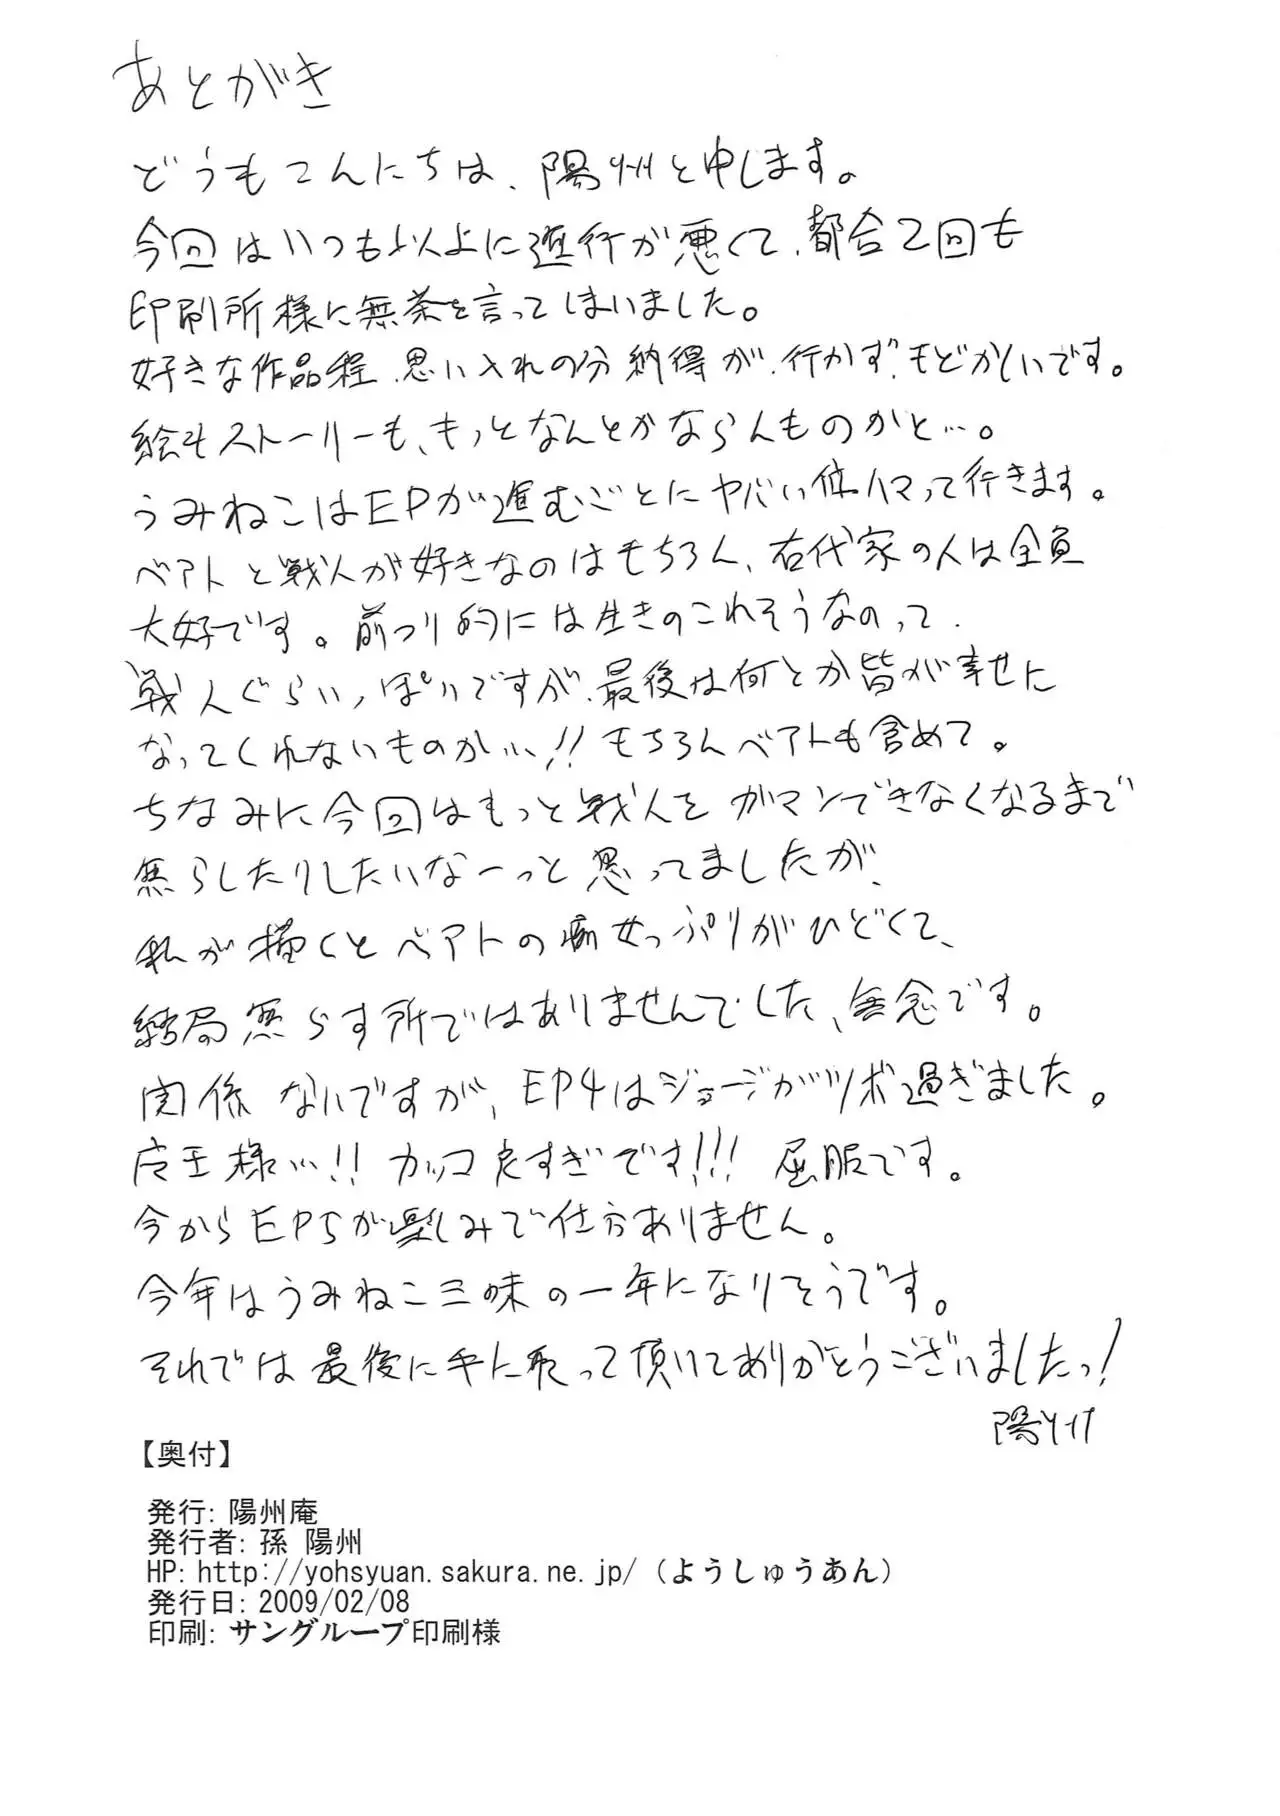 あとがき
どうもこんにちは、陽州と申します。
今回はいつも以上に進行が悪くて、都合2回も
印刷所様に無茶を言ってしまいました。
好きな作品程、思い入れの分納得が行かずもどかしいです。
絵もストーリーも、もっとなんとかならんものかと…。
うみねこはEPが進むごとにヤバい位ハマって行きます。
ベアトと戦人が好きなのはもちろん、右代家の人は全員
大好です。前フリ的には生きのこれそうなのって、
戦人ぐらいっぽいですが、最後は何とか皆が幸せに
なってくれないものか…!! もちろんベアトも含めて。
ちなみに今回はもっと戦人を ガマンできなくなるまで
焦らしたりしたいなーっと思ってましたが、
私が描くとベアトの痴女っぷりがひどくて、
結局焦らす所ではありませんでした、無念です。
関係ないですが、EP4はジョージがツボ過ぎました。
店主様…!! カッコ良すぎです!!! 屈服です。
今からEP5が楽しみで仕方ありません。
今年はうみねこ三昧の一年になりそうです。
それでは最後に手に取って頂いてありがとうございましたっ!
陽州
【奥付】
発行: 陽州庵
発行者: 孫 陽州
HP: http://yohsyuan.sakura.ne.jp/ (ようしゅうあん)
発行日: 2009/02/08
印刷: サングループ印刷様